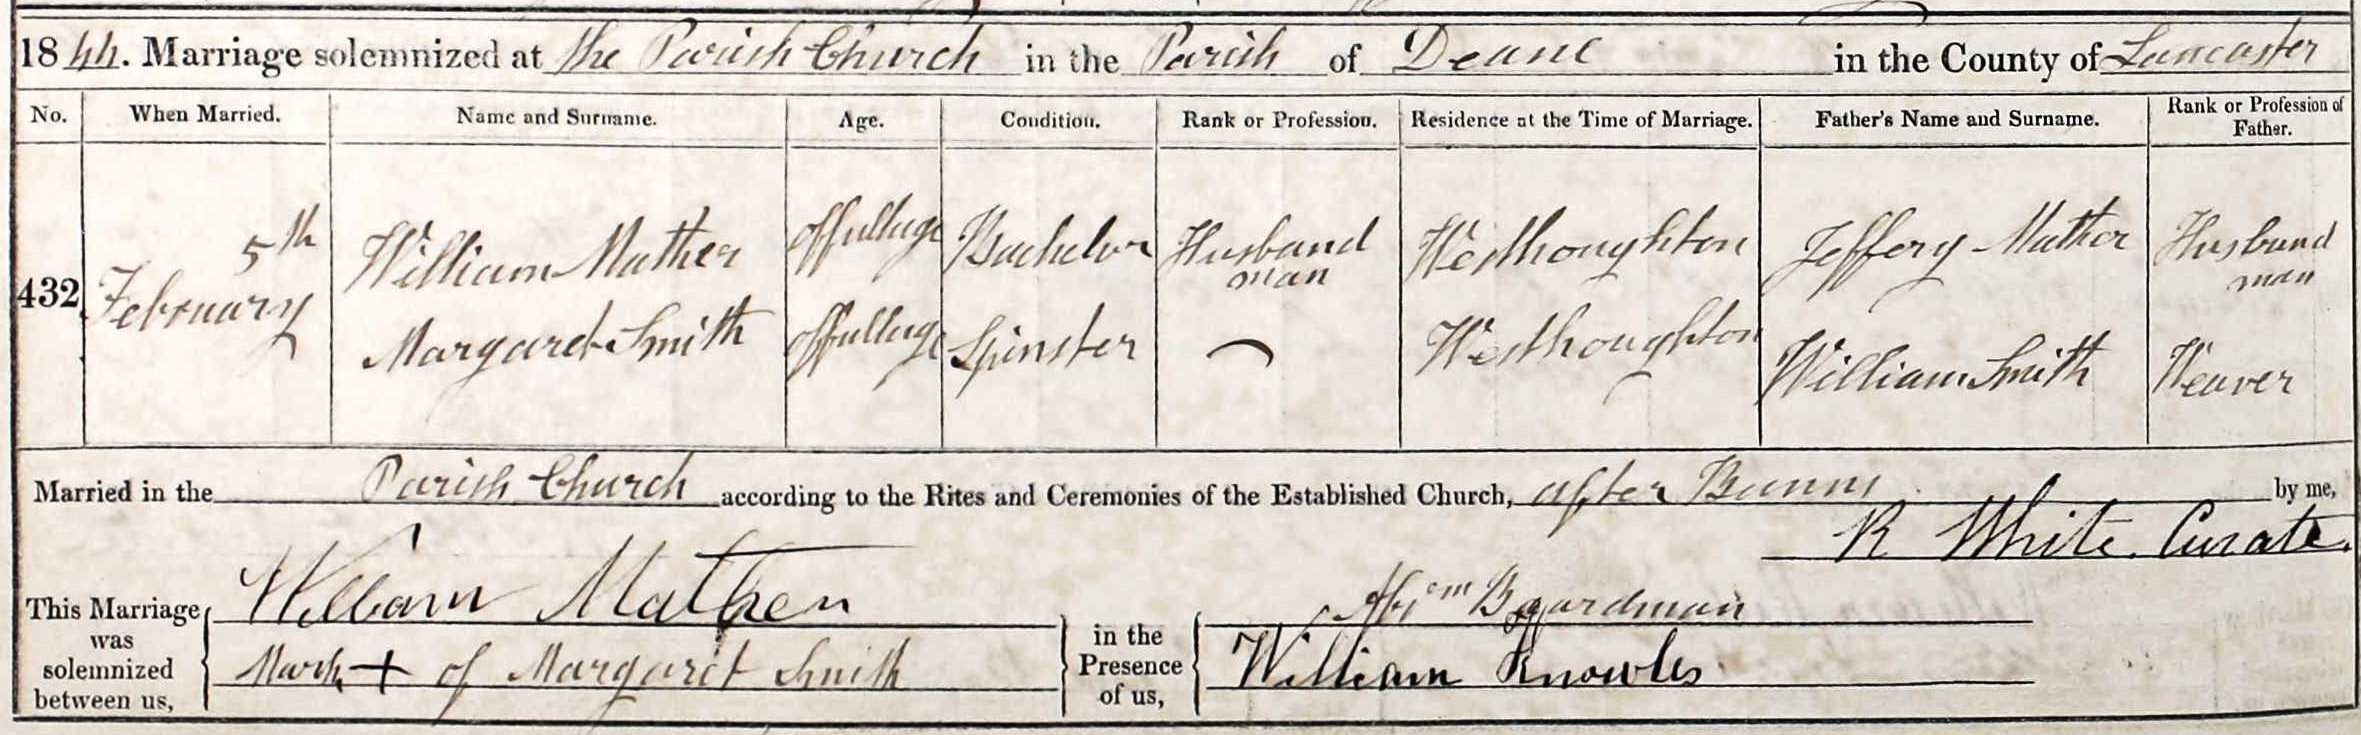 1844. Marriage solemnized at the Parish Church in the Parish of Deane in the County of Lancaster
No. When Married. Name and Surname. Age. Condition. Rank or Profession. Residence at the Time of Marriage. Father's Name and Surname. Rank or Profession of Father.
432 5th February William Mather of full age Bachelor Husband man Westhoughton Jeffery Mather Husband man
Margaret Smith of full age Spinster Westhoughton William Smith Weaver
Married in the Parish Church according to the Rites and Ceremonies of the Established Church, after Banns by me,
R White Curate.
This Marriage was solemnized between us, William Mather
Mark + of Margaret Smith
in the Presence of us, Boardman
William Knowles